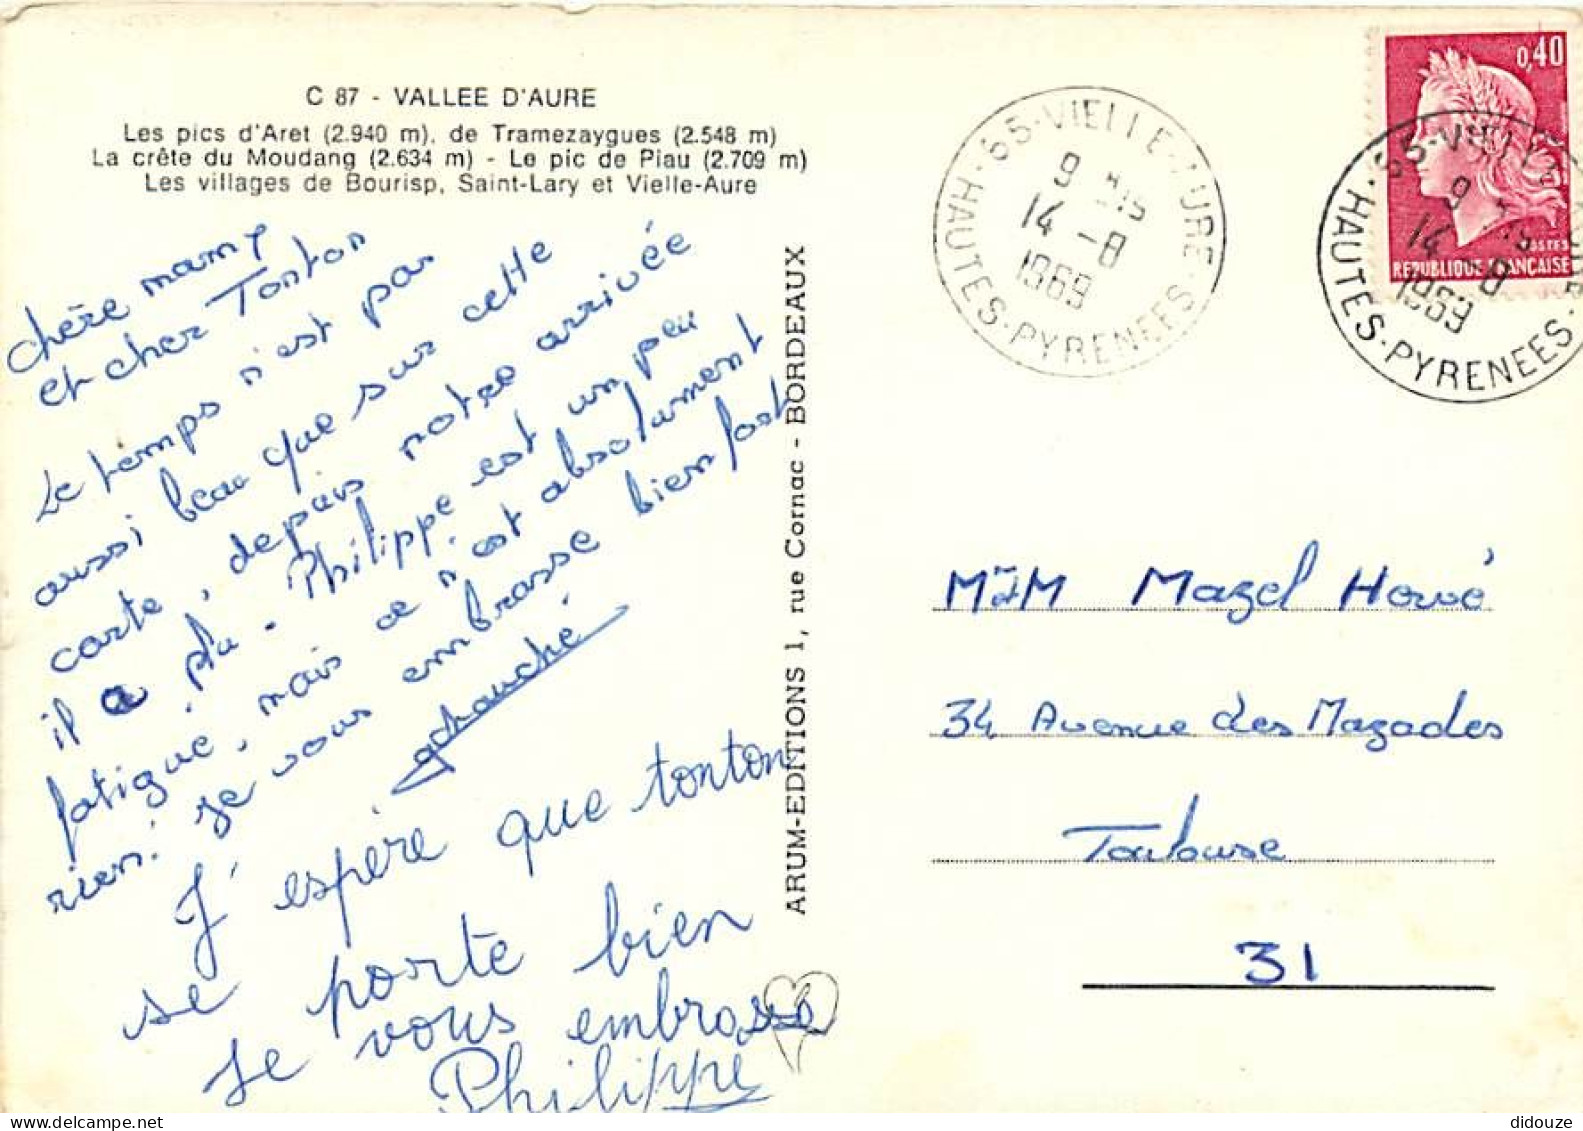 C 87 - VALLEE D'AURE
Les pics d'Aret (2.940 m), de Tramezaygues (2.548 m)
La crête du Moudang (2.634 m) - Le pic de Piau (2.709 m)
Les villages de Bourisp, Saint-Lary et Vielle-Aure
chère mamy
et cher Tonton
Le temps n'est pas
aussi beau que sur cette
carte, depuis notre arrivée
il a plu. Philippe est un peu
fatigué, mais ce n'est absolument
rien. je vous embrasse bien fort
J'espère que tonton
se porte bien
Je vous embrasse
Philippe
ARUM-EDITIONS 1, rue Cornac - BORDEAUX
65-VIELLE-AURE
9
14-8
1969
HAUTES-PYRENEES
0,40
POSTES
REPUBLIQUE FRANÇAISE
65-VIELLE-AURE
9
14-8
1969
HAUTES-PYRENEES
Mazel Hervé
34 Avenue des Mazades
Toulouse
31
didouze